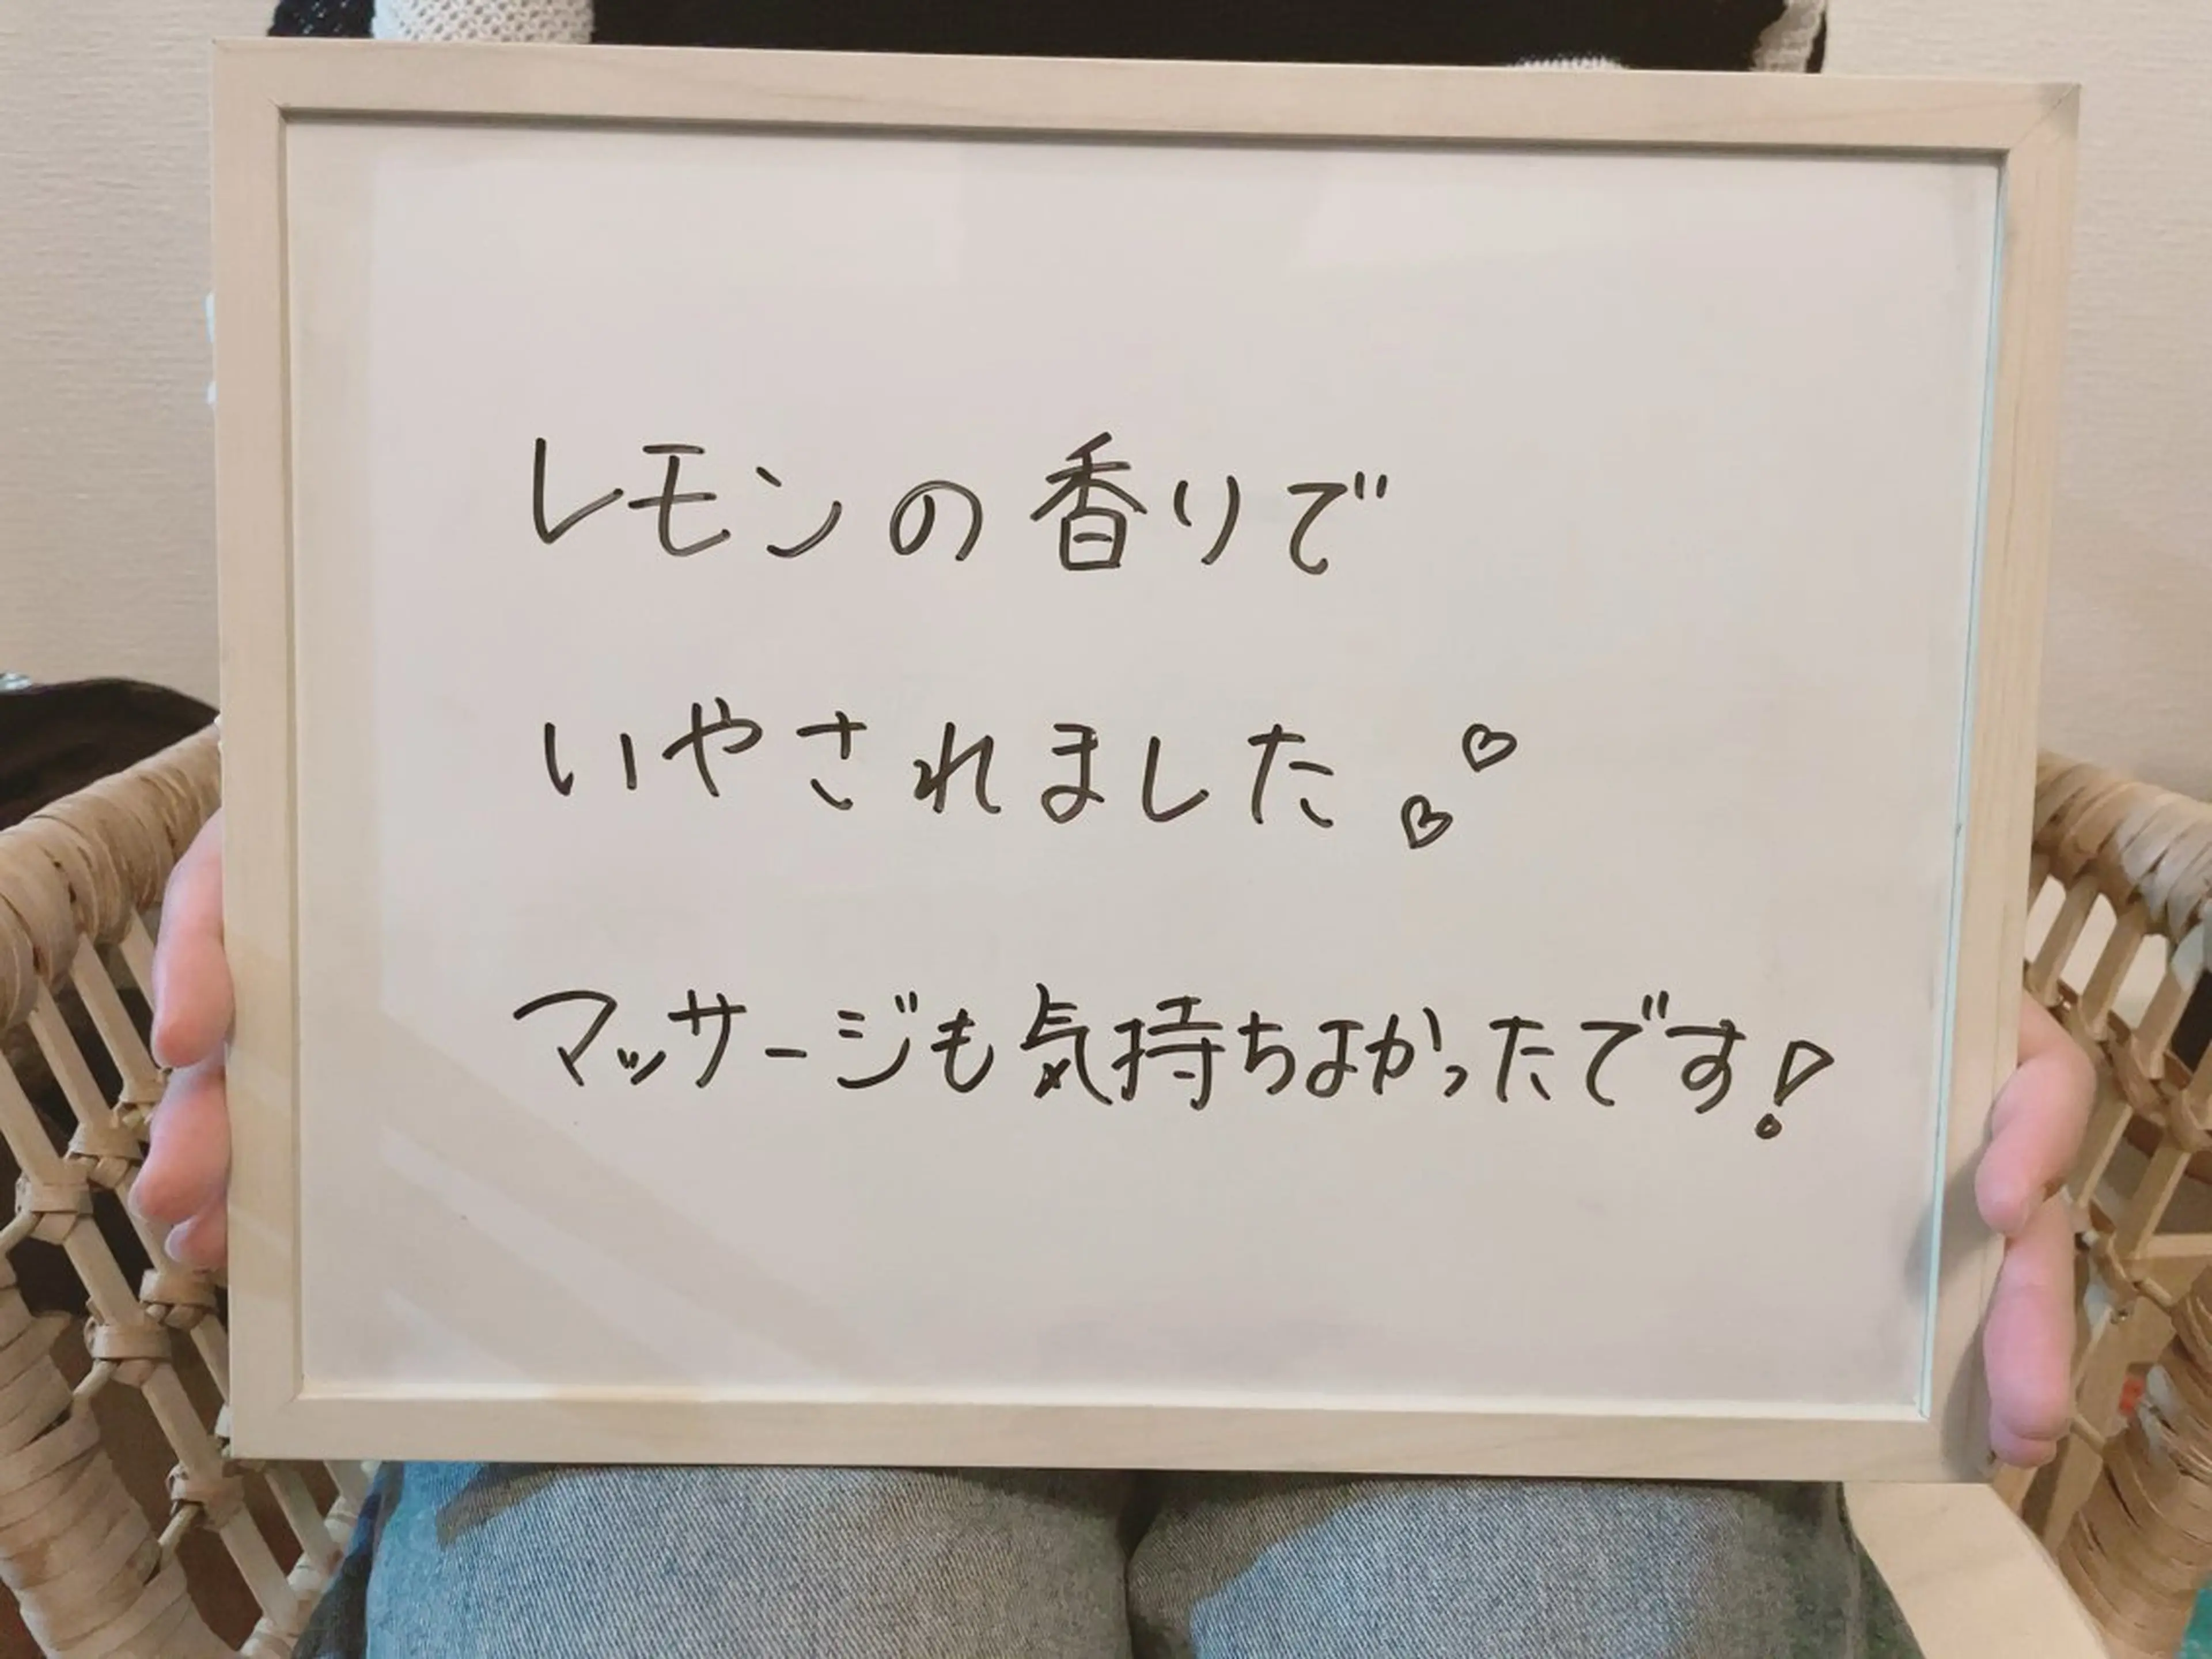 レモンの香りで
いやされました♡♡
マッサージも気持ちよかったです!